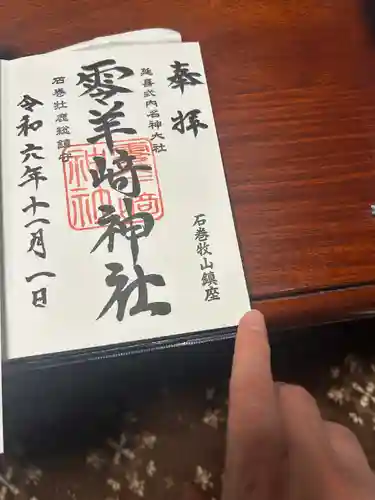 奉拝
石巻牧山鎮座
延喜式内名神大社
零羊崎神社
石巻牡鹿総鎮守
令和六年十一月一日
零羊崎神社